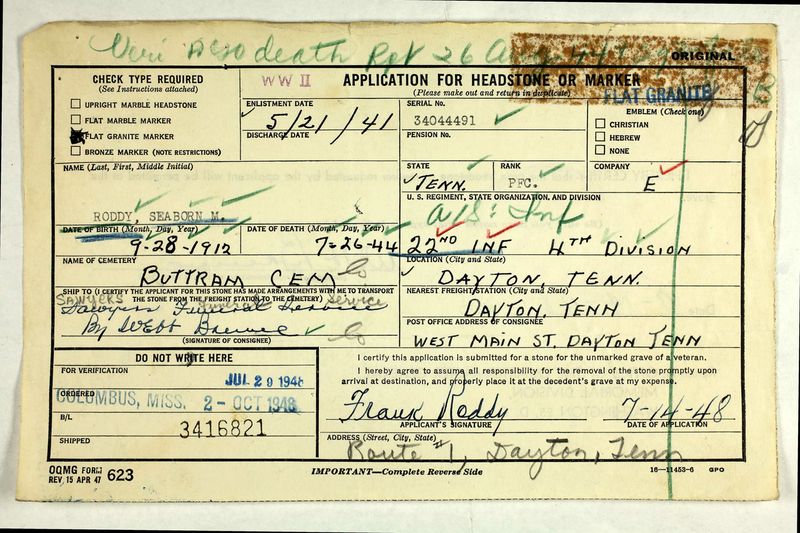 Veri AGO death Rpt 26 Aug 44
ORIGINAL
CHECK TYPE REQUIRED
(See Instructions attached)
UPRIGHT MARBLE HEADSTONE
FLAT MARBLE MARKER
FLAT GRANITE MARKER
BRONZE MARKER (NOTE RESTRICTIONS)
WW II
APPLICATION FOR HEADSTONE OR MARKER
(Please make out and return in duplicate)
FLAT GRANITE
B
ENLISTMENT DATE
5/21/41
DISCHARGE DATE
SERIAL NO.
34044491
PENSION NO.
EMBLEM (Check one)
CHRISTIAN
HEBREW
NONE
NAME (Last, First, Middle Initial)
RODDY, SEABORN M.
STATE
TENN.
RANK
PFC.
COMPANY
E
U. S. REGIMENT, STATE ORGANIZATION, AND DIVISION
Inf
22ND INF 4TH DIVISION
DATE OF BIRTH (Month, Day, Year)
9-28-1912
DATE OF DEATH (Month, Day, Year)
7-26-44
NAME OF CEMETERY
BUTTRAM CEM
LOCATION (City and State)
DAYTON, TENN.
SHIP TO (I CERTIFY THE APPLICANT FOR THIS STONE HAS MADE ARRANGEMENTS WITH ME TO TRANSPORT
THE STONE FROM THE FREIGHT STATION TO THE CEMETERY)
Sawyers Funeral Service
Sawyers Funeral Service
By Webb
(SIGNATURE OF CONSIGNEE)
NEAREST FREIGHT STATION (City and State)
DAYTON, TENN
POST OFFICE ADDRESS OF CONSIGNEE
WEST MAIN ST. DAYTON TENN
DO NOT WRITE HERE
FOR VERIFICATION
JUL 29 1948
ORDERED
COLUMBUS, MISS. 2 - OCT 1948
B/L
3416821
SHIPPED
I certify this application is submitted for a stone for the unmarked grave of a veteran.
I hereby agree to assume all responsibility for the removal of the stone promptly upon
arrival at destination, and properly place it at the decedent's grave at my expense.
Frank Roddy 7-14-48
APPLICANT'S SIGNATURE
DATE OF APPLICATION
ADDRESS (Street, City, State)
Route #1, Dayton, Tenn
OQMG FORM
REV 15 APR 47 623
IMPORTANT—Complete Reverse Side
16—11453-6 GPO